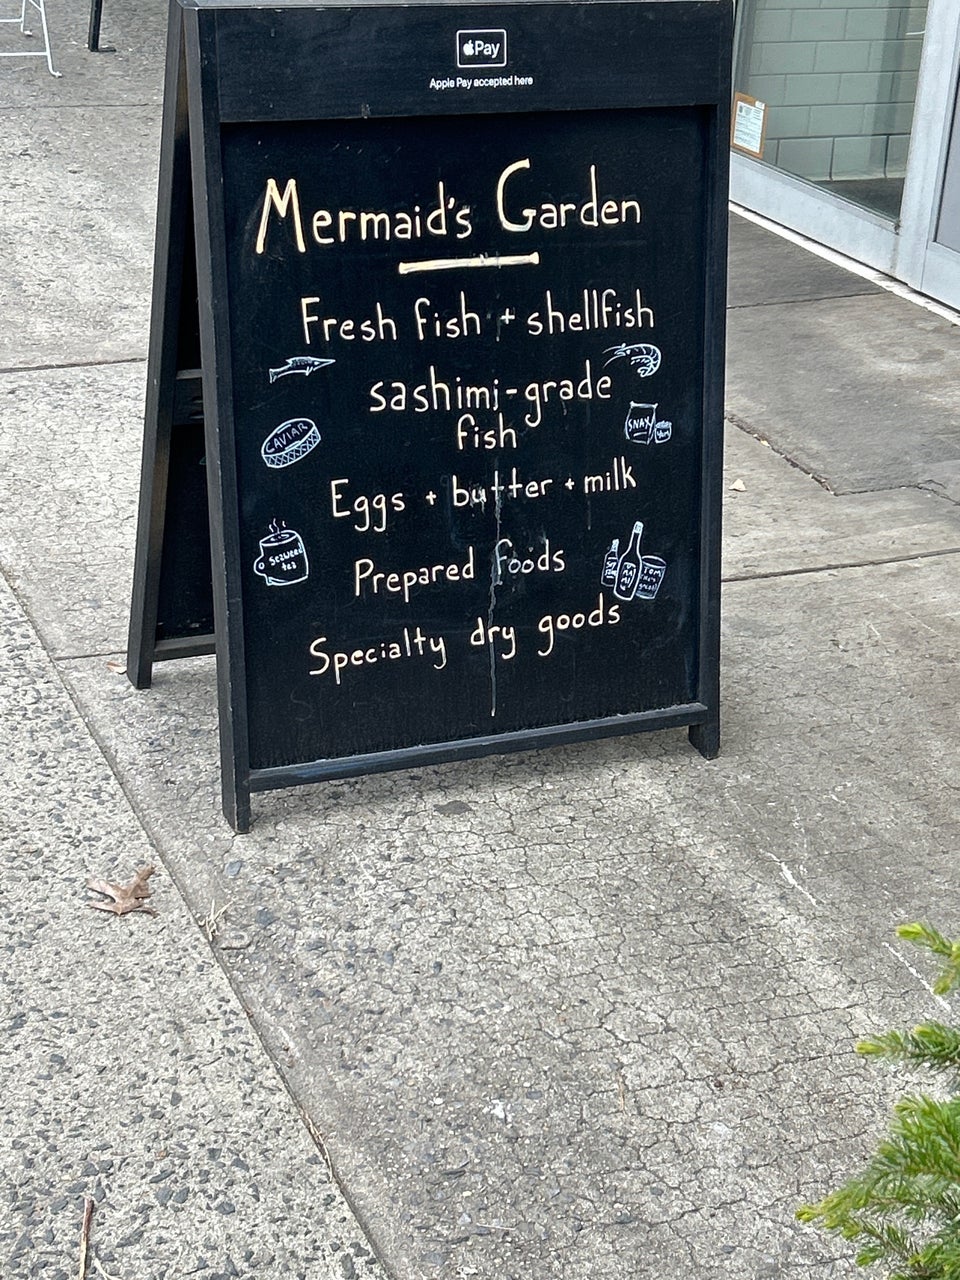 Pay
Apple Pay accepted here
Mermaid's Garden
Fresh fish + shellfish
sashimi-grade
fish
CAVIAR
SNAX
YUM
Eggs + butter + milk
seaweed
tea
Prepared foods
TOM
Specialty dry goods